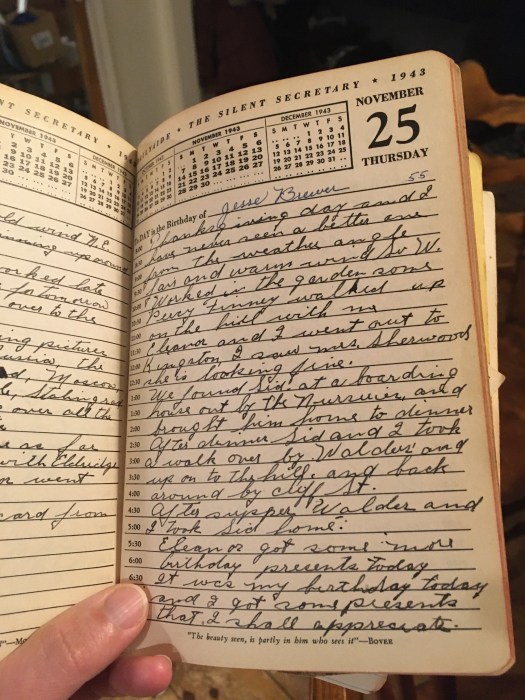 NT SECRETARY * 1943
NOVEMBER 1943
DECEMBER
old wind N.E.
worked late
tomorrow
over to the
ing pictures
Russia, the
Moscow
Stalingrad
over all the
as far
with Eldridge
went
card from
THE SILENT SECRETARY * 1943
NOVEMBER 1943
S M T W T F S
1 2 3 4 5 6
7 8 9 10 11 12 13
14 15 16 17 18 19 20
21 22 23 24 25 26 27
28 29 30
DECEMBER 1943
S M T W T F S
1 2 3 4
5 6 7 8 9 10 11
12 13 14 15 16 17 18
19 20 21 22 23 24 25
26 27 28 29 30 31
NOVEMBER
25
THURSDAY
To-DAY is the Birthday of Jesse Brewer 55
Thanksgiving day and I
have never seen a better one
from the weather angle
Fair and warm wind So. W.
Worked in the garden some
Percy Finney walked up
on the hill with me
Eleanor and I went out to
Kingston, I saw Mrs. Sherwood
she is looking fine.
1:00 We found Sid, at a boarding
1:30 house out by the Nurseries, and
2:00 brought him home to dinner
2:30 After dinner Sid and I took
3:00 a walk over by Waldes' and
3:30 up on to the hill, and back
4:00 around by cliff St.
4:30 After supper Walder and
5:00 I took Sid home.
5:30 Eleanor got some more
6:00 birthday presents today
6:30 It was my birthday today
and I got some presents
that I shall appreciate.
"The beauty seen, is partly in him who sees it"—BOVEE